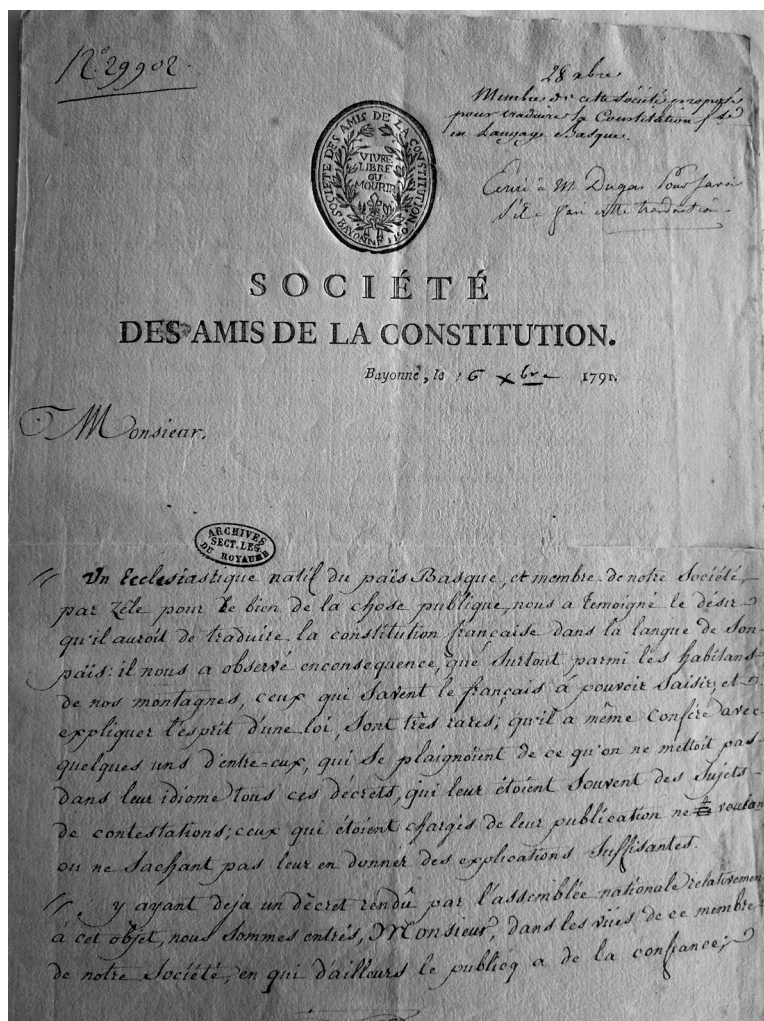 N.° 29902.
28 xbre
Membre de cette Société proposé
pour traduire la Constitution fse
en Langage Basque.
Ecrire à M Dugas Pour savoir
s'il a fait cette traduction.
SOCIÉTÉ DES AMIS DE LA CONSTITUTION
BAYONNE 1790
VIVRE
LIBRE
OU
MOURIR
SOCIÉTÉ
DES AMIS DE LA CONSTITUTION.
Bayonne, le 16 xbre 1791.
Monsieur,
ARCHIVES
SECT. LEG.
DU ROYAUME
// Un Ecclesiastique natif du païs Basque, et membre de notre Société,
par Zéle pour le bien de la chose publique, nous a temoigné le désir
qu'il auroit de traduire la constitution française dans la langue de son
païs: il nous a observé enconsequence, que surtout parmi les habitans
de nos montagnes, ceux qui savent le français à pouvoir saisir, et
expliquer l'esprit d'une loi, sont très rares; qu'il a même conféré avec
quelques uns d'entre-eux, qui se plaignoient de ce qu'on ne mettoit pas
dans leur idiome tous ces décrets, qui leur étoient souvent des sujets
de contestations; ceux qui étoient chargés de leur publication ne voulan
ou ne sachant pas leur en donner des explications suffisantes.
// y ayant deja un décret rendû par l'assemblée nationale relativemen
à cet objet, nous sommes entrés, Monsieur, dans les vües de ce membre
de notre Société, en qui d'ailleurs le publicq a de la confiance;